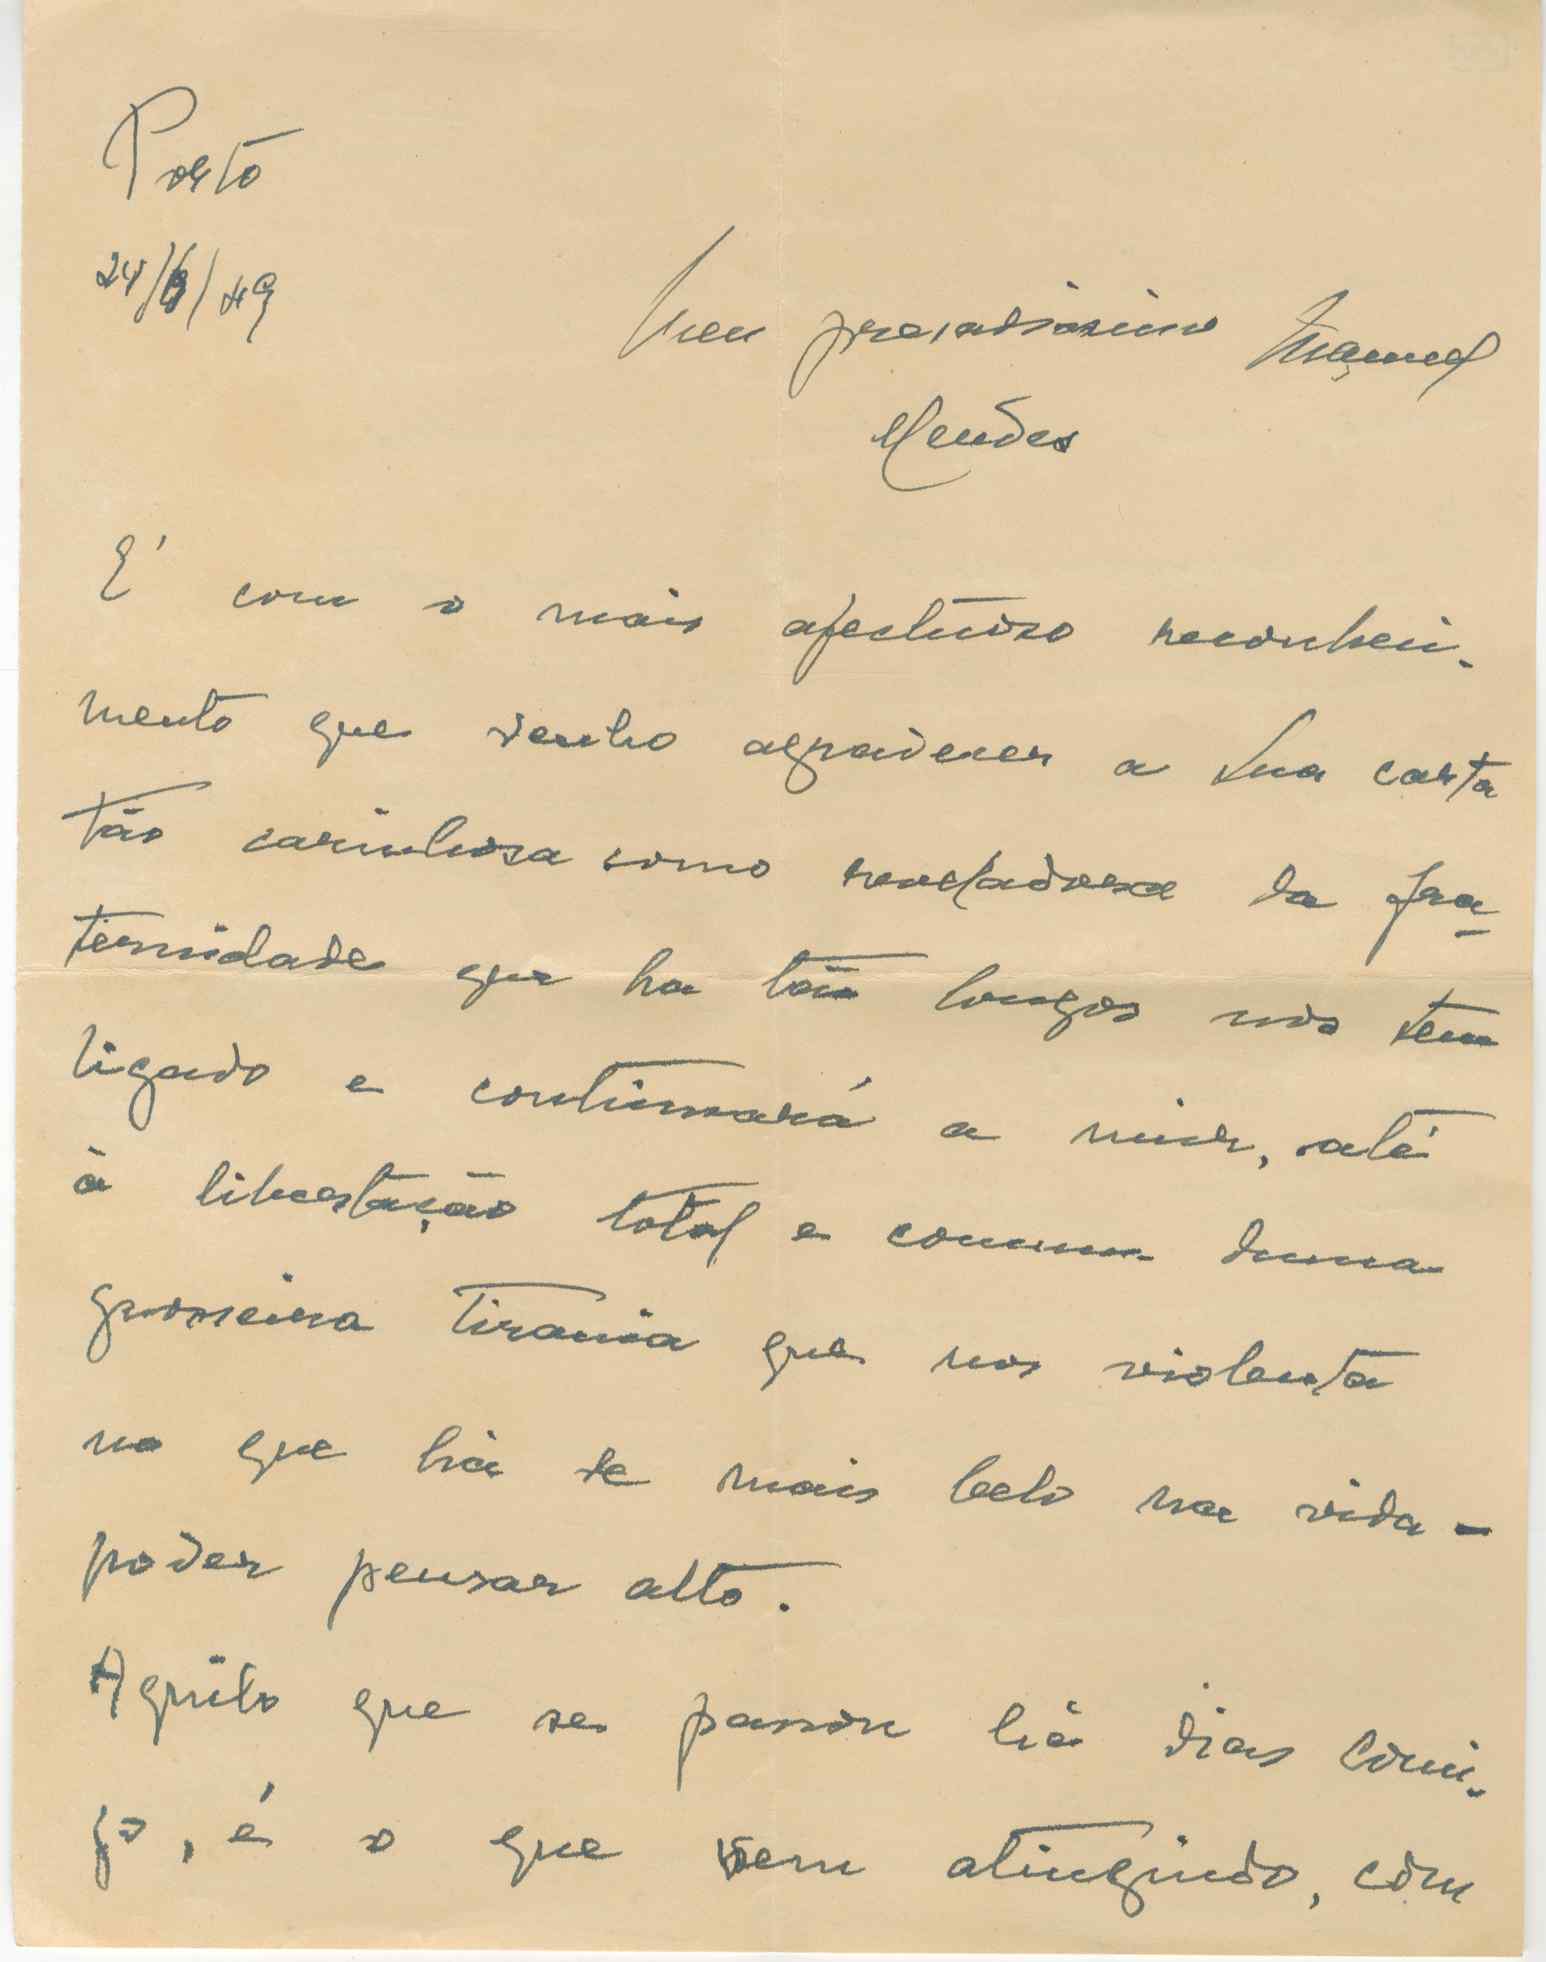 Porto
24/6/49
Meu presadissimo Manuel
Mendes
E' com o mais afectuoso reconheci-
mento que venho agradecer a sua carta
tão carinhosa como reveladora da fra-
ternidade que ha tão longos nos tem
ligado e continuará a unir, até
à libertação total e comum duma
grosseira tirania que nos violenta
no que há de mais belo na vida -
poder pensar alto.
Aquilo que se passou há dias comi-
go, é o que vem atingindo, com